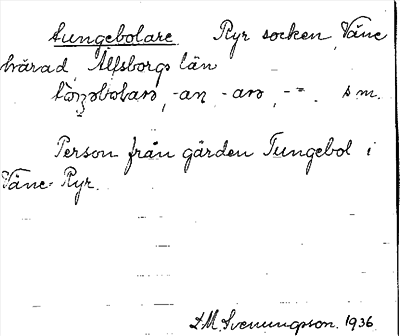 tungebolare Ryr socken, Väne
härad, Älfsborgs län
-aŋ, -arə, -=. s m.
Person från gården Tungebol i
Väne-Ryr.
L.M. Svenungsson. 1936